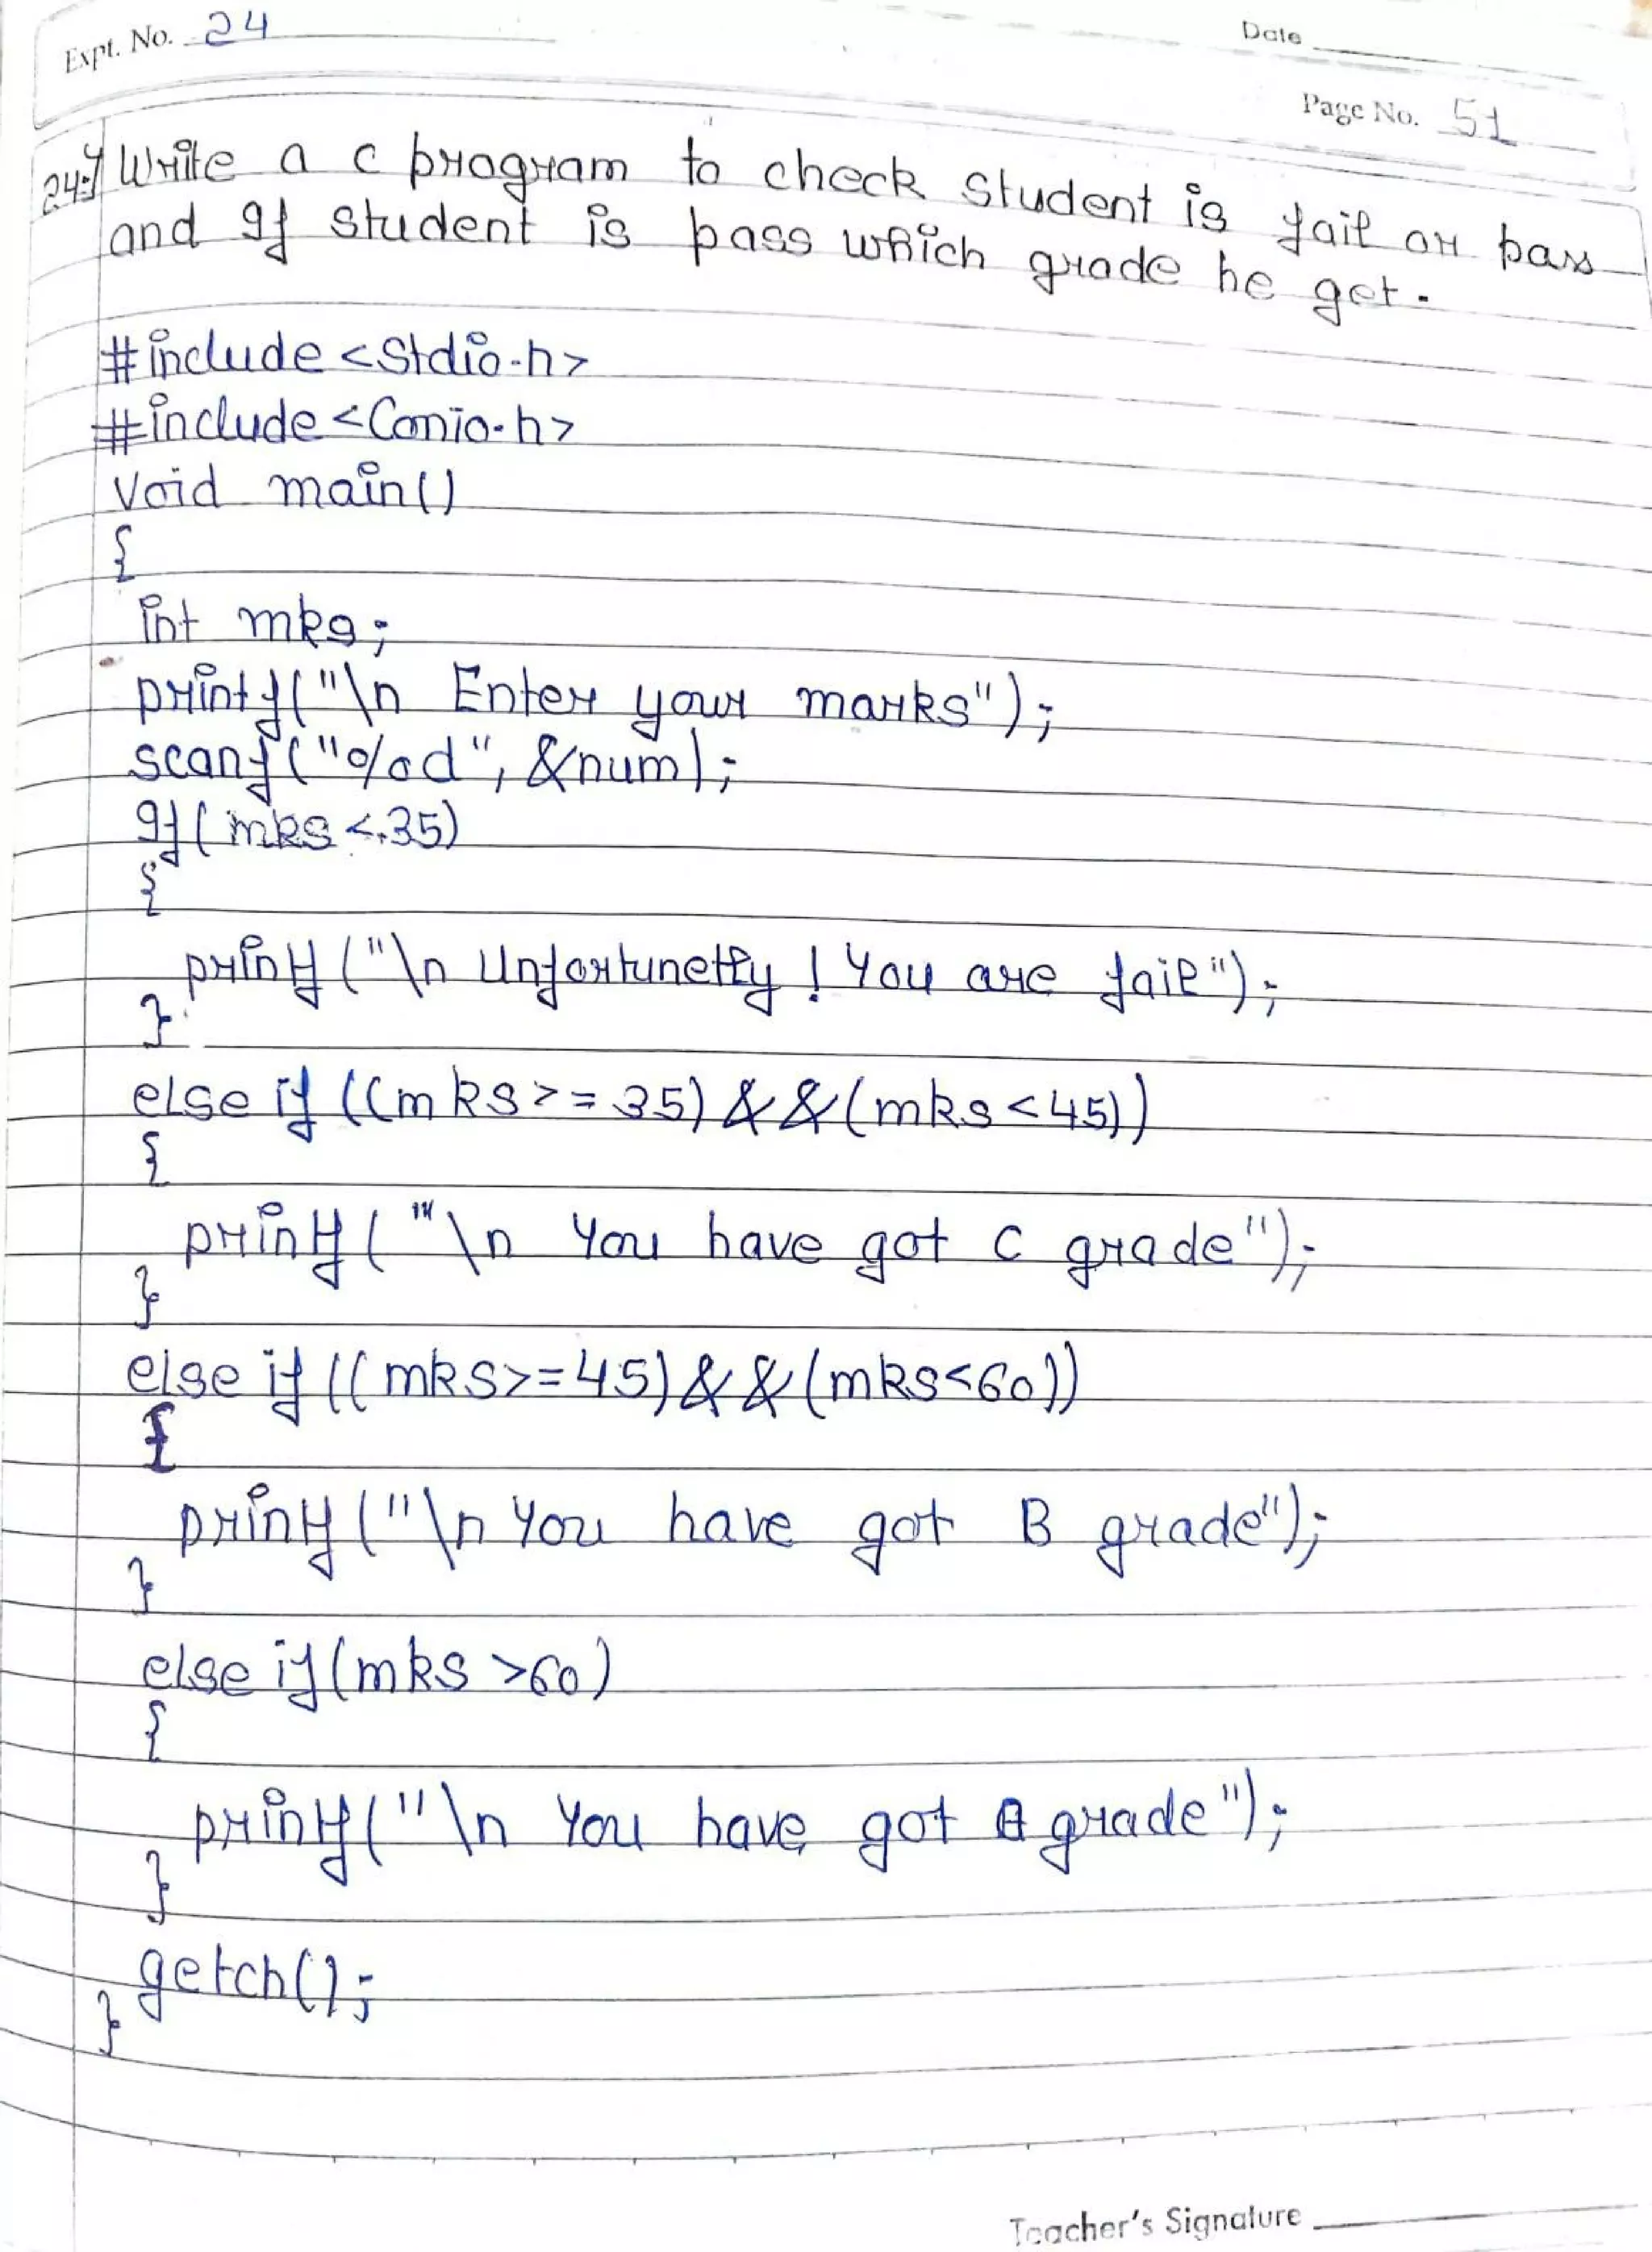 Expt. No. 24
Date
Page No. 51
24:- Write a c program to check student is fail or pass
and If student is pass which grade he get.
#include <Stdio.h>
#include <Conio.h>
Void main()
{
int mks;
printf("\n Enter your marks");
scanf("%d", &num);
If( mks <.35)
{
printf("\n Unfortunetly ! You are fail");
}
else if ((mks>=35) && (mks<45))
{
printf("\n You have got C grade");
}
else if ((mks>=45) && (mks<60))
{
printf("\n You have got B grade");
}
else if(mks >60)
{
printf("\n You have got A grade");
}
getch();
}
Teacher's Signature